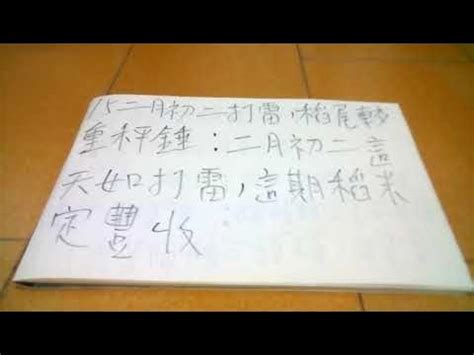 15二月初二打雷，稻尾較
重秤錘：二月初二這
天如打雷，這期稻末
定豐收